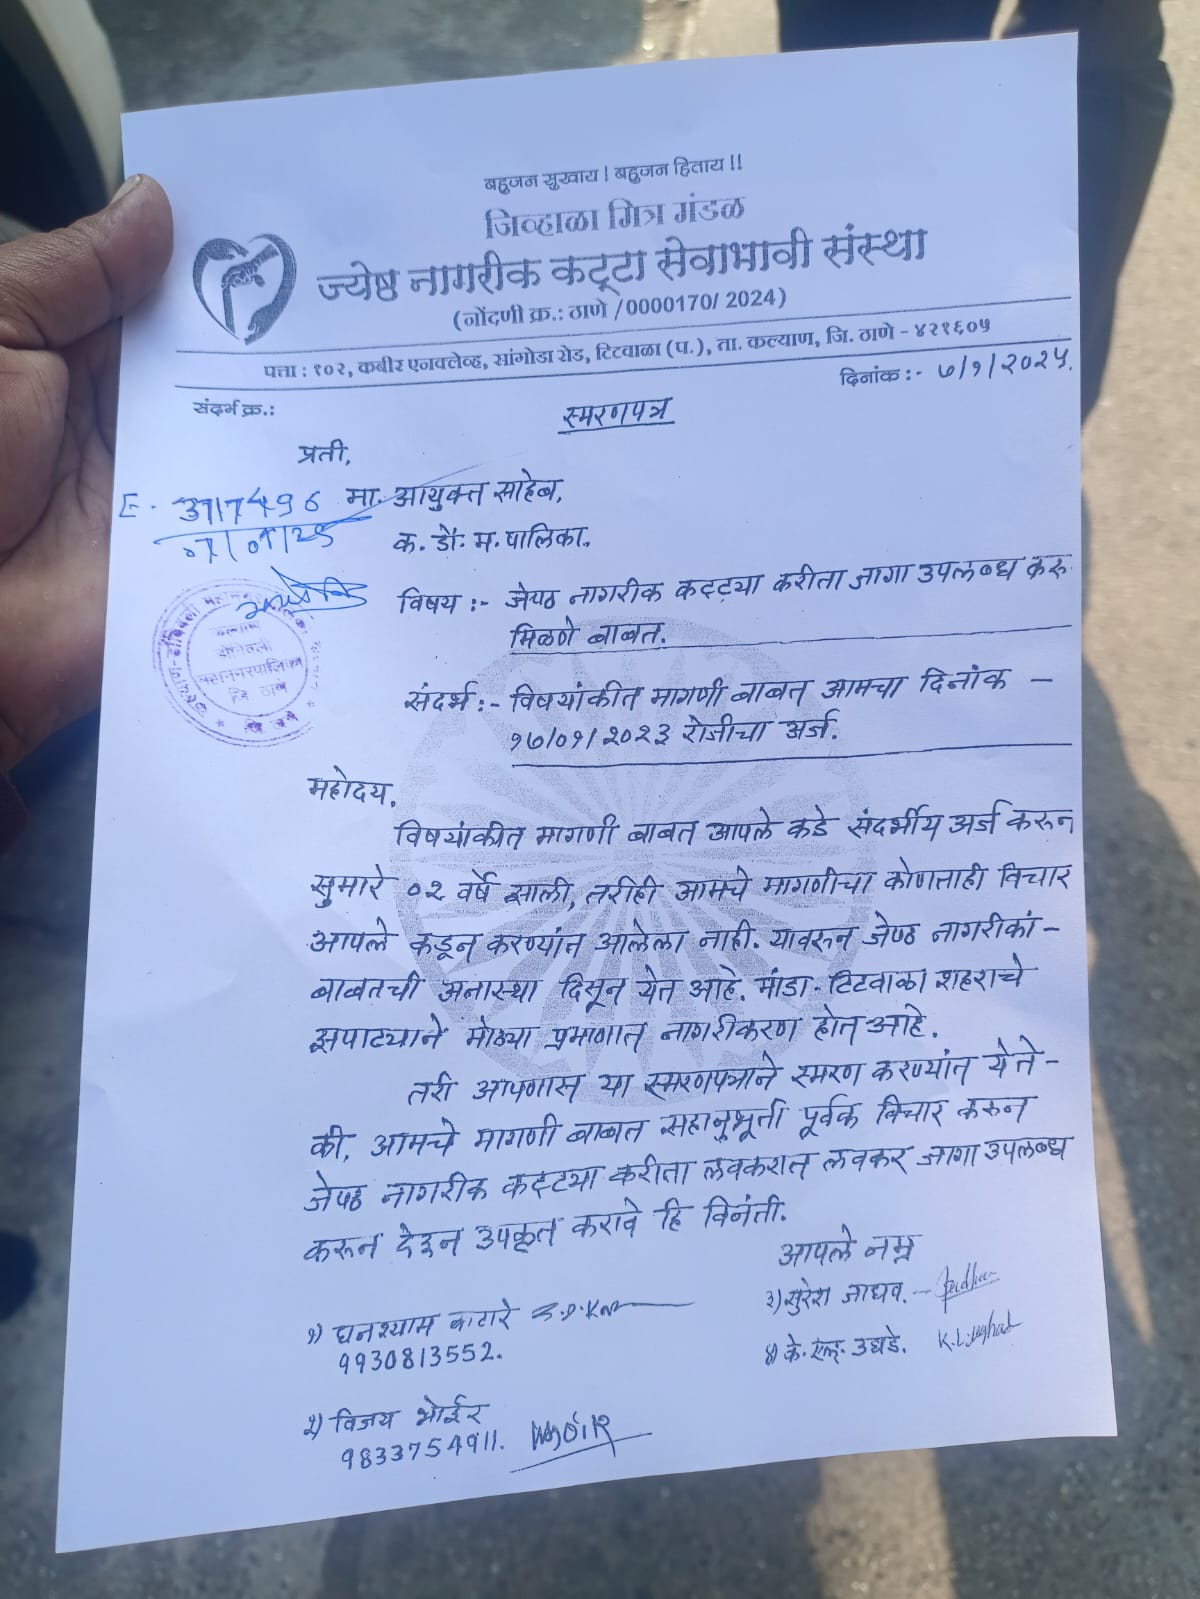 बहुजन सुखाय। बहुजन हिताय !!
जिव्हाळा मित्र मंडळ
ज्येष्ठ नागरीक कट्टा सेवाभावी संस्था
(नोंदणी क्र.: ठाणे /0000170/ 2024)
पत्ता : १०२, कबीर एनक्लेव्ह, सांगोडा रोड, टिटवाळा (प.), ता. कल्याण, जि. ठाणे - ४२१६०५
दिनांक :- ७/१/२०२५.
संदर्भ क्र.:
स्मरणपत्र
प्रती,
मा. आयुक्त साहेब,
क. डों. म. पालिका.
07/01/25
विषय :- जेष्ठ नागरीक कट्ट्या करीता जागा उपलब्ध करु
मिळणे बाबत.
संदर्भ :- विषयांकीत मागणी बाबत आमचा दिनांक -
१७/०१/२०२३ रोजीचा अर्ज.
महोदय,
विषयांकीत मागणी बाबत आपले कडे संदर्भीय अर्ज करुन
सुमारे ०२ वर्षे झाली, तरीही आमचे मागणीचा कोणताही विचार
आपले कडून करण्यांत आलेला नाही. यावरुन जेष्ठ नागरीकां-
बाबतची अनास्था दिसून येत आहे. मांडा - टिटवाळा शहराचे
झपाट्याने मोठ्या प्रमाणात नागरीकरण होत आहे.
तरी आपणास या स्मरणपत्राने स्मरण करण्यांत येते-
की, आमचे मागणी बाबत सहानुभूती पूर्वक विचार करुन
जेष्ठ नागरीक कट्ट्या करीता लवकरात लवकर जागा उपलब्ध
करुन देऊन उपकृत करावे हि विनंती.
आपले नम्र
१) घनश्याम काटारे
9930813552.
२) विजय भोईर
9833754911.
३) सुरेश जाधव. -
४) के. एल. उघडे.